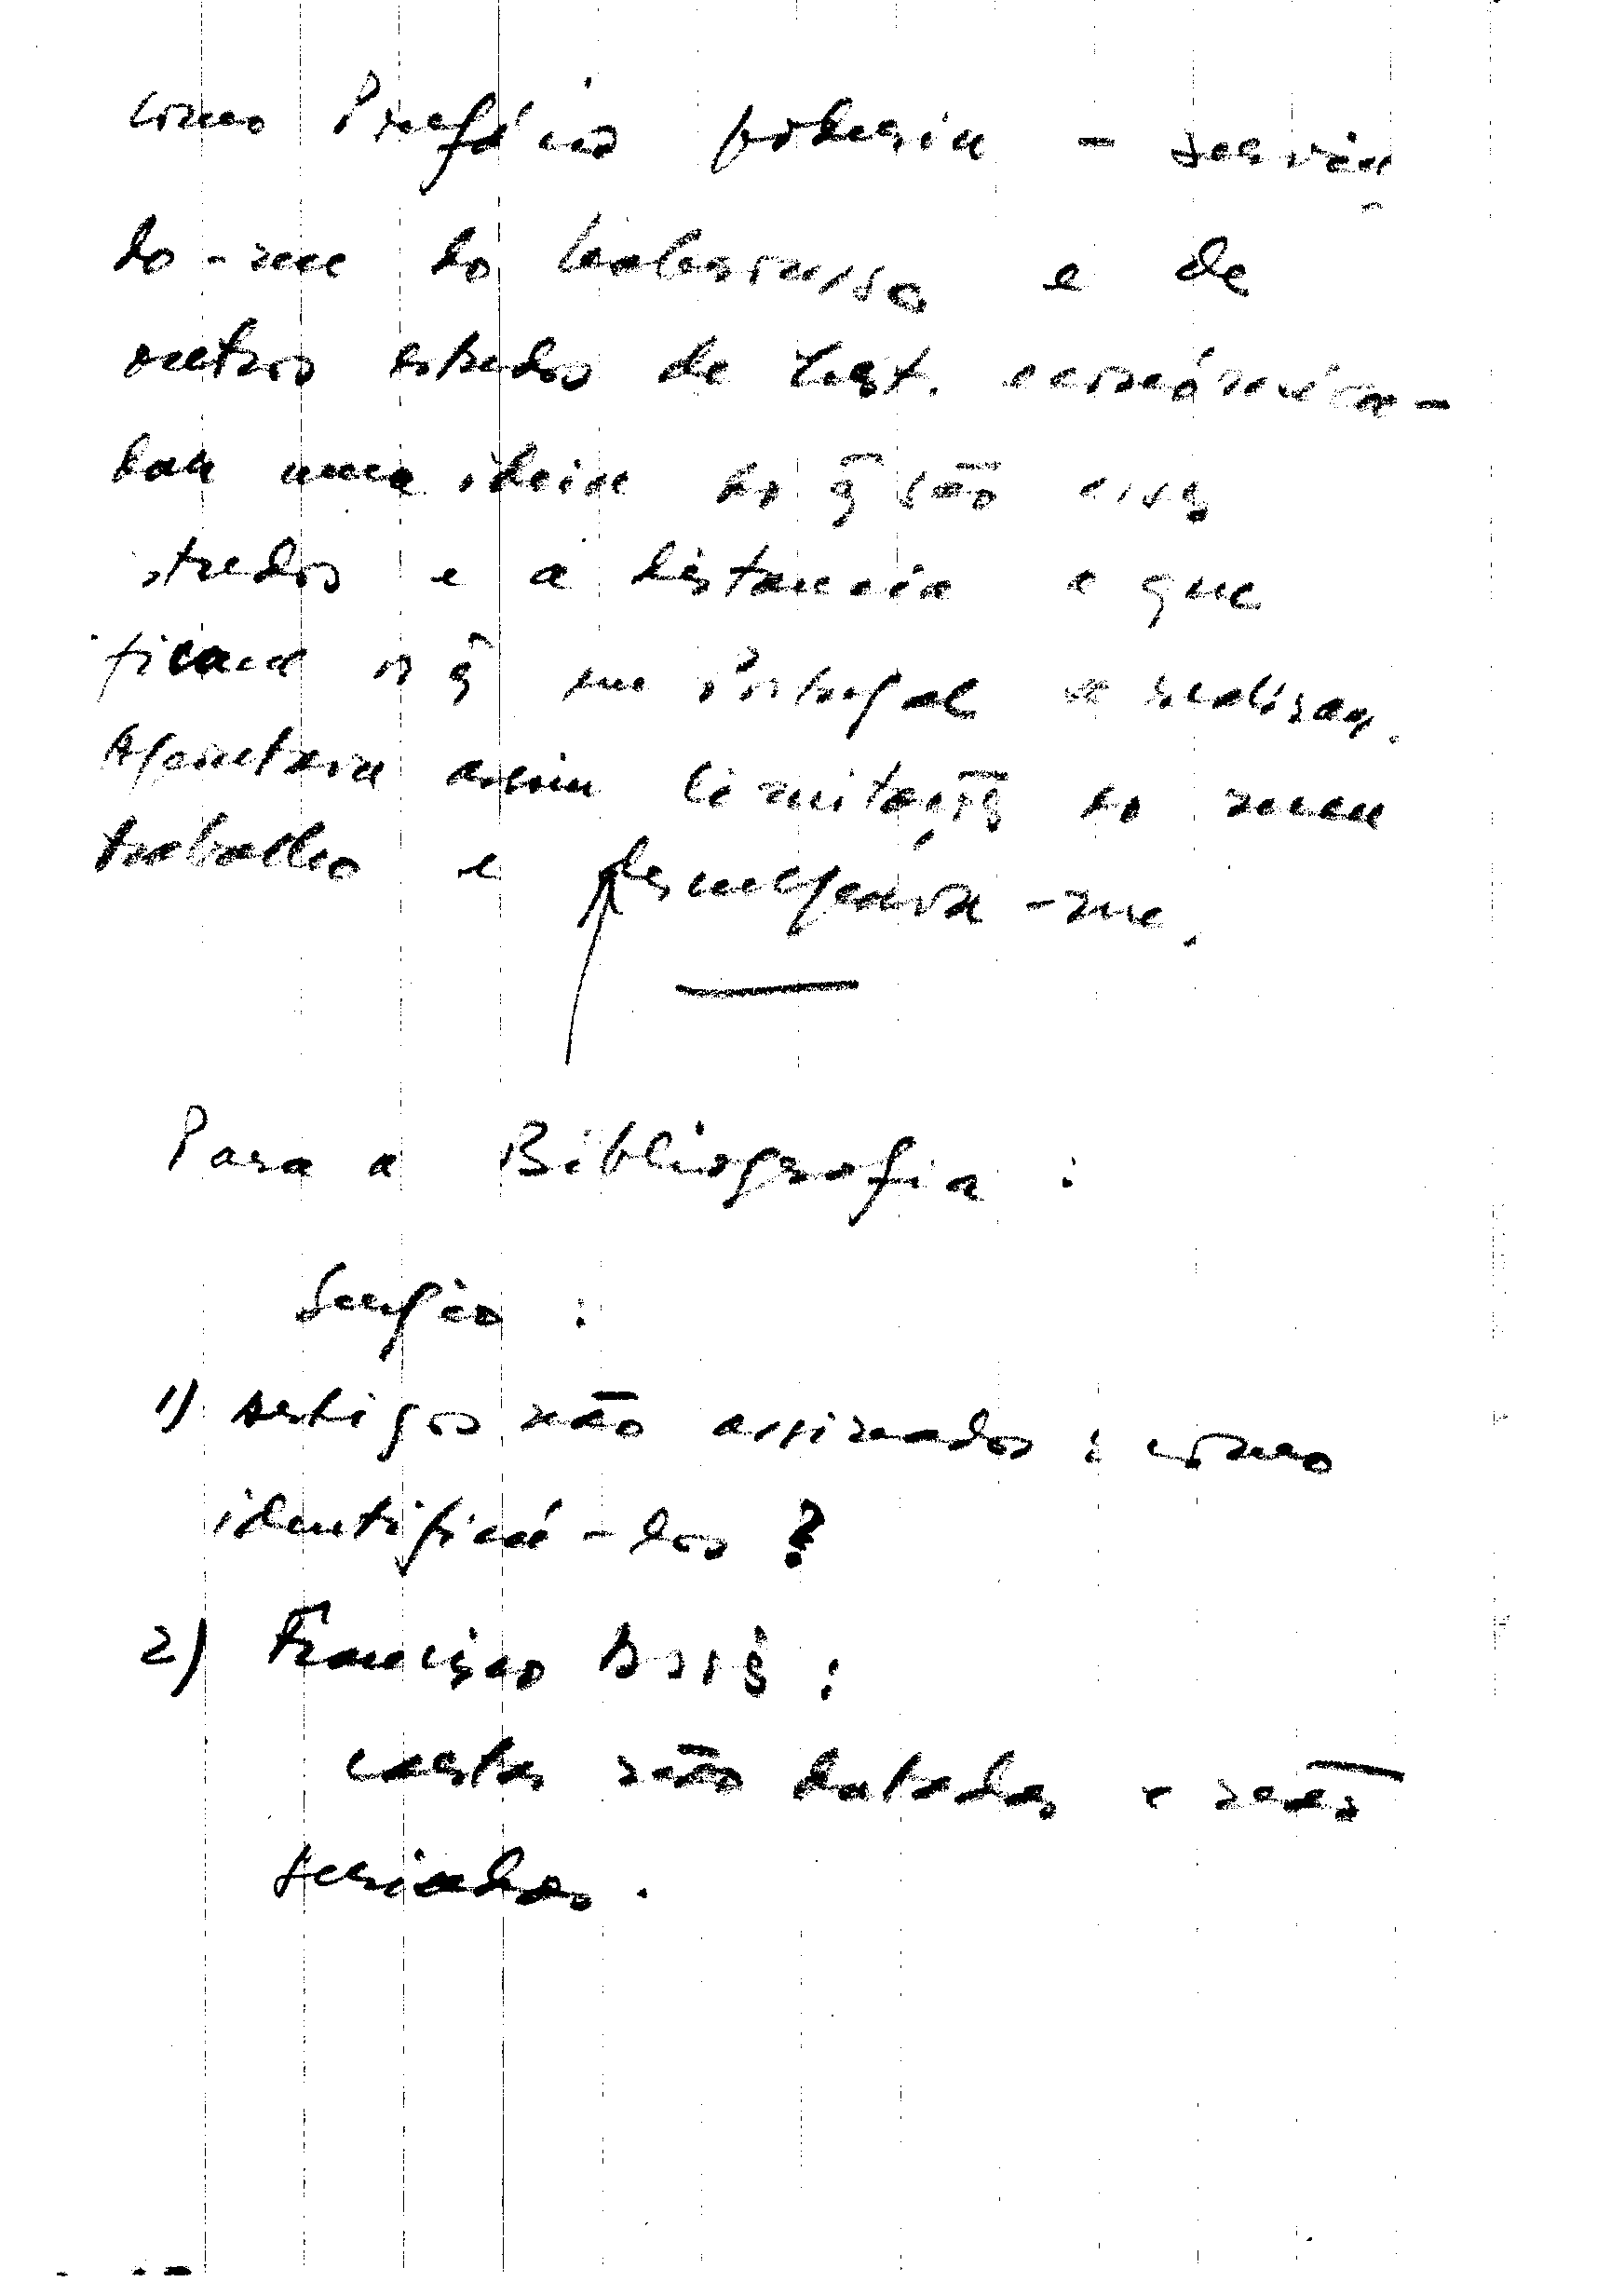 como Prefácio poderia - servin
do-me do Labrousse e de
outros estudos de hist. económica -
dar uma ideia do q̃ são esses
studos e a distancia a que
ficam os q̃ em Portugal se realizam.
Apontava assim limitações do meu
trabalho e
Para a Bibliografia :
Sergio :
1) Artigos não assinados : como
identificá-los ?
2) Francisco Assis :
cartas não datadas e não
seriadas.